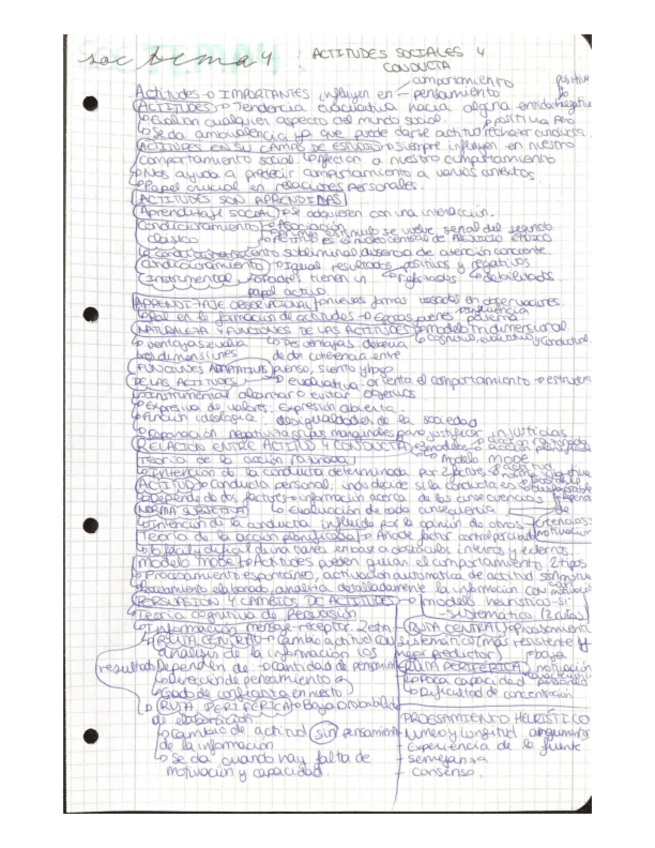 soc tema 4
ACTITUDES SOCIALES Y
CONDUCTA
Actitudes → IMPORTANTES influyen en comportamiento
pensamiento
positiva
negativa
ACTITUDES → Tendencia evaluativa hacia alguna entidad
Evalúan cualquier aspecto del mundo social.
positiva pero
Se da ambivalencia ya que puede darse actitud rechazar conducta
ACTITUDES EN SU CAMPO DE ESTUDIO → siempre influyen en nuestro
comportamiento social Afectan a nuestro comportamiento
Nos ayuda a predecir comportamiento a varios contextos
Papel crucial en relaciones personales.
ACTITUDES SON APRENDIDAS
Aprendizaje SOCIAL → se adquieren con una interacción.
Condicionamiento → Asociación
clásico
primer estímulo se vuelve señal del segundo
subliminal ausencia de atención consciente.
Condicionamiento → Igual resultados positivos y negativos
Instrumental → Padres tienen un
papel activo
reforzados
debilitados
APRENDIZAJE OBSERVACIONAL → nuevas formas basadas en observaciones.
Rol en la formación de actitudes →
influencia
NATURALEZA Y FUNCIONES DE LAS ACTITUDES → modelo tridimensional.
Cognitivo, evaluativo y conductual.
ventajas: evalúa
3 dimensiones
Desventajas: debería
de dar coherencia entre
pienso, siento y hago
FUNCIONES ADAPTATIVAS
DE LAS ACTITUDES
evaluativa orienta el comportamiento → estructura
Instrumental alcanzar o evitar objetivos
Expresiva de valores: Expresión abierta
Función ideológica: desigualdades de la sociedad
Separación negativa grupos marginales para justificar injusticias
RELACIÓN ENTRE ACTITUD Y CONDUCTA
modelos → acción razonada
acción planificada
modelo mode
Teoría de la acción razonada
Intención de la conducta determinada por 2 factores → actitud
norma subjetiva
ACTITUD → Conducta personal, individuo decide si la conducta es favorable
desfavorable
Depende de dos factores → información acerca de las consecuencias
Evaluación de cada consecuencia
NORMA SUBJETIVA
Depende
de
creencias
motivación
Intención de la conducta, influido por la opinión de otros
Teoría de la acción planificada → Añade factor control percibido
lo fácil y difícil de una tarea en base a obstáculos internos y externos.
Modelo mode → Actitudes pueden guiar el comportamiento 2 tipos
Procesamiento espontáneo, activación automática de actitud sin motivación
Procesamiento elaborado, analiza detalladamente la información con motivación
PERSUASIÓN Y CAMBIOS DE ACTITUDES
modelo heurístico-si
-sistemático (2 rutas)
Teoría cognitiva de persuasión
Información mensaje-receptor 2 rutas
RUTA CENTRAL → cambio actitud
analizan de la información los
resultados Dependen de → cantidad de pensamiento
dirección de pensamiento
Grado de confianza en nuestro
RUTA PERIFÉRICA → Baja probabilidad
de elaboración
Cambio de actitud sin pensamiento
de la información
Se da cuando hay falta de
motivación y capacidad.
RUTA CENTRAL → Procesamiento
sistemático (más resistente y
mejor predictor)
RUTA PERIFÉRICA → baja
motivación
Poca capacidad personal
Dificultad de concentración
PROCESAMIENTO HEURÍSTICO
- Número y longitud argumentos
- Experiencia de la fuente
- semejanza
- consenso.